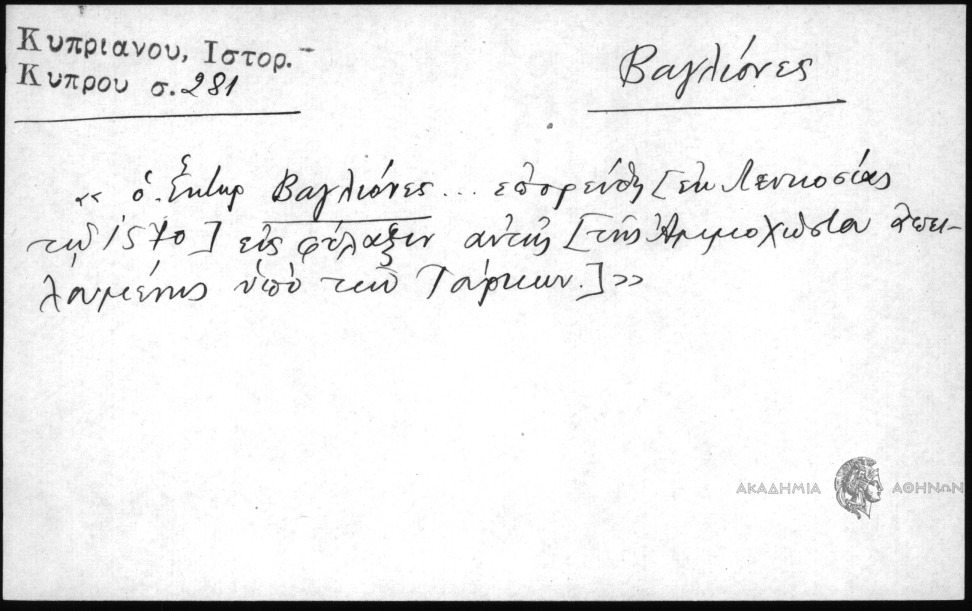 Κυπριανου, Ιστορ.
Κυπρου σ. 281
Βαγλιόνες
« ὁ Ἕκτωρ Βαγλιόνες ... ἐπορεύθη [ἐκ Λευκοσίας
τῷ 1570] εἰς φύλαξιν αὐτῆς [τῆς Ἀμμοχώστου ἀπει-
λουμένης ὑπὸ τῶν Τούρκων.]»
ΑΚΑΔΗΜΙΑ ΑΘΗΝΩΝ